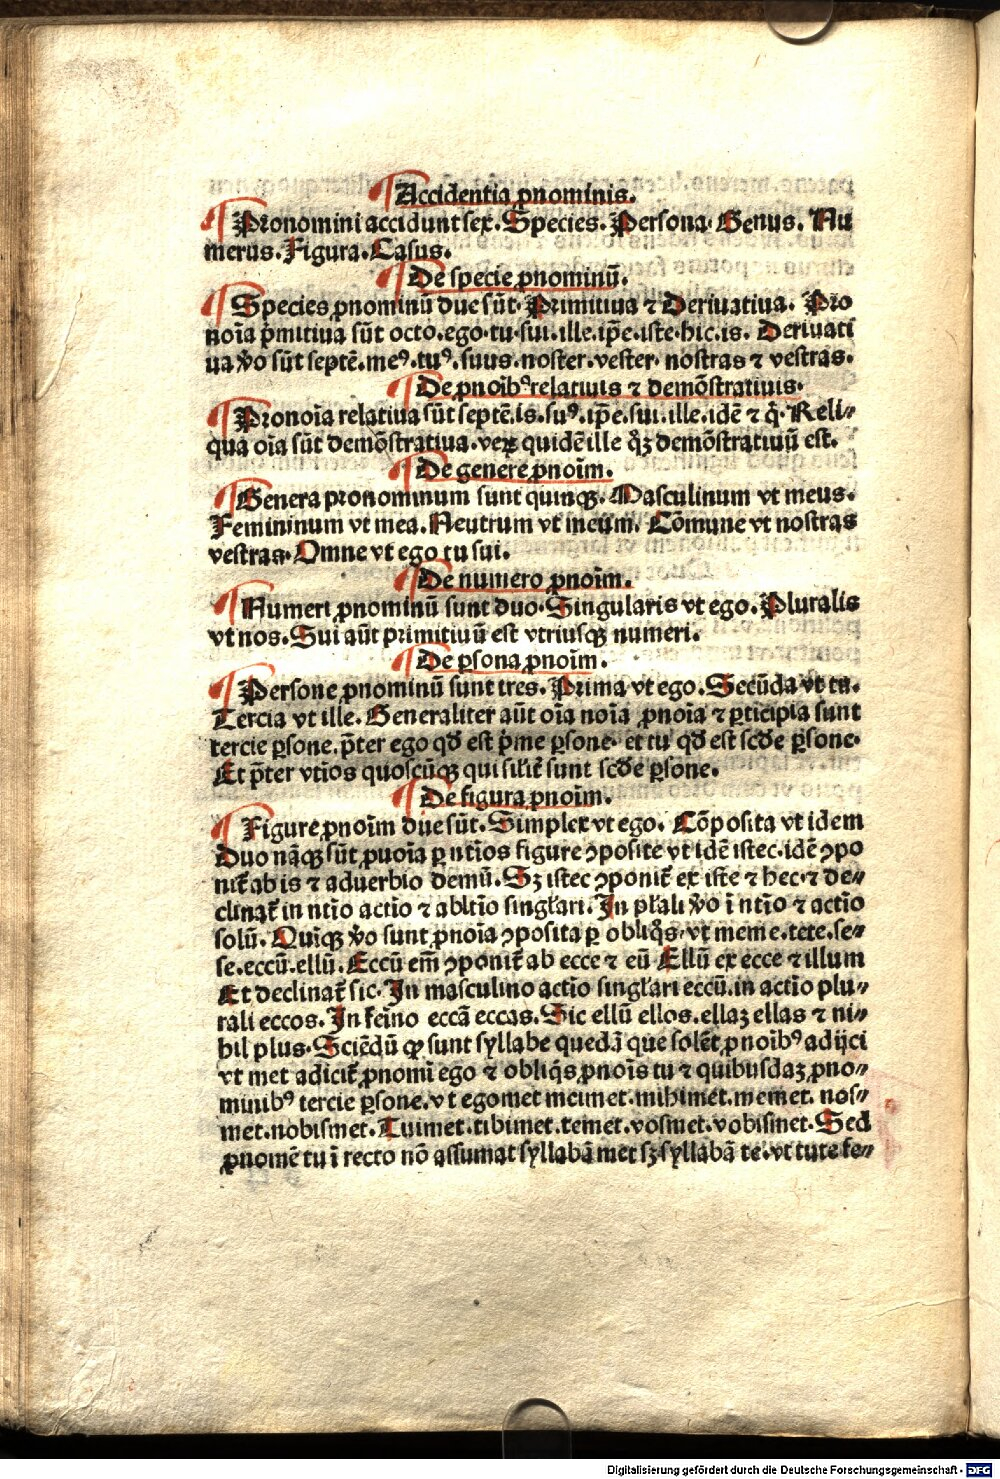 Accidentia ꝓnominis.
Pronomini accidunt sex. Species. Persona. Genus. Nu
merus. Figura. Casus.
De specie ꝓnominū.
Species ꝓnominū due sūt. Primitiua ⁊ Deriuatiua. Pro
noīa p̄mitiua sūt octo. ego. tu. sui. ille. ip̄e. iste. hic. is. Deriuati
ua v̄o sūt septē. meꝰ. tuꝰ. suus. noster. vester. nostras ⁊ vestras.
De ꝓnoībꝰ relatiuis ⁊ demōstratiuis.
Pronoīa relatiua sūt septē. is. suꝰ. ip̄e. sui. ille. idē ⁊ q̄. Reli⸗
qua oīa sūt demōstratiua. veꝝ quidē ille q̄ꝫ demōstratiuū est.
De genere ꝓnoīm.
Genera pronominum sunt quinqꝫ. Masculinum vt meus.
Femininum vt mea. Neutrum vt meum. Cōmune vt nostras
vestras. Omne vt ego tu sui.
De numero ꝓnoīm.
Numeri ꝓnominū sunt duo. Singularis vt ego. Pluralis
vt nos. Sui aūt primitiuū est vtriusqꝫ numeri.
De ꝑsona ꝓnoīm.
Persone ꝓnominū sunt tres. Prima vt ego. Secūda vt tu.
Tercia vt ille. Generaliter aūt oīa noīa ꝓnoīa ⁊ ꝑticipia sunt
tercie ꝑsone. p̄ter ego qđ est p̄me ꝑsone. et tu qđ est scđe ꝑsone.
Et p̄ter vtīos quoscūqꝫ qui sil̄it̄ sunt scđe ꝑsone.
De figura ꝓnoīm.
Figure ꝓnoīm due sūt. Simplex vt ego. Cōposita vt idem
Duo nāqꝫ sūt ꝓnoīa ꝑ ntīos figure ꝯposite vt idē istec. idē ꝯpo
nit̄ ab is ⁊ aduerbio demū. Sꝫ istec ꝯponit̄ ex iste ⁊ hec. ⁊ de⸗
clinat̄ in ntīo actīo ⁊ abltīo singl̄ari. In pl̄ali v̄o ī ntīo ⁊ actīo
solū. Quīqꝫ v̄o sunt ꝓnoīa ꝯposita ꝑ obliq̄s. vt meme. tete. se⸗
se. eccū. ellū. Eccū em̄ ꝯponit̄ ab ecce ⁊ eū Ellū ex ecce ⁊ illum
Et declinat̄ sic. In masculino actīo singl̄ari eccū. in actīo plu⸗
rali eccos. In feīno eccā eccas. Sic ellū ellos. ellaꝫ ellas ⁊ ni⸗
hil plus. Sciēdū ꝙ sunt syllabe quedā que solēt ꝓnoībꝰ adijci
vt met adicit̄ ꝓnomī ego ⁊ obliq̄s ꝓnoīs tu ⁊ quibusdaꝫ ꝓno⸗
minibꝰ tercie ꝑsone. vt egomet meimet. mihimet. memet. nos⸗
met. nobismet. Tuimet. tibimet. temet. vosmet. vobismet. Sed
ꝓnomē tu ī recto nō assumat syllabā met sꝫ syllabā te. vt tute se⸗
Digitalisierung gefördert durch die Deutsche Forschungsgemeinschaft - DFG